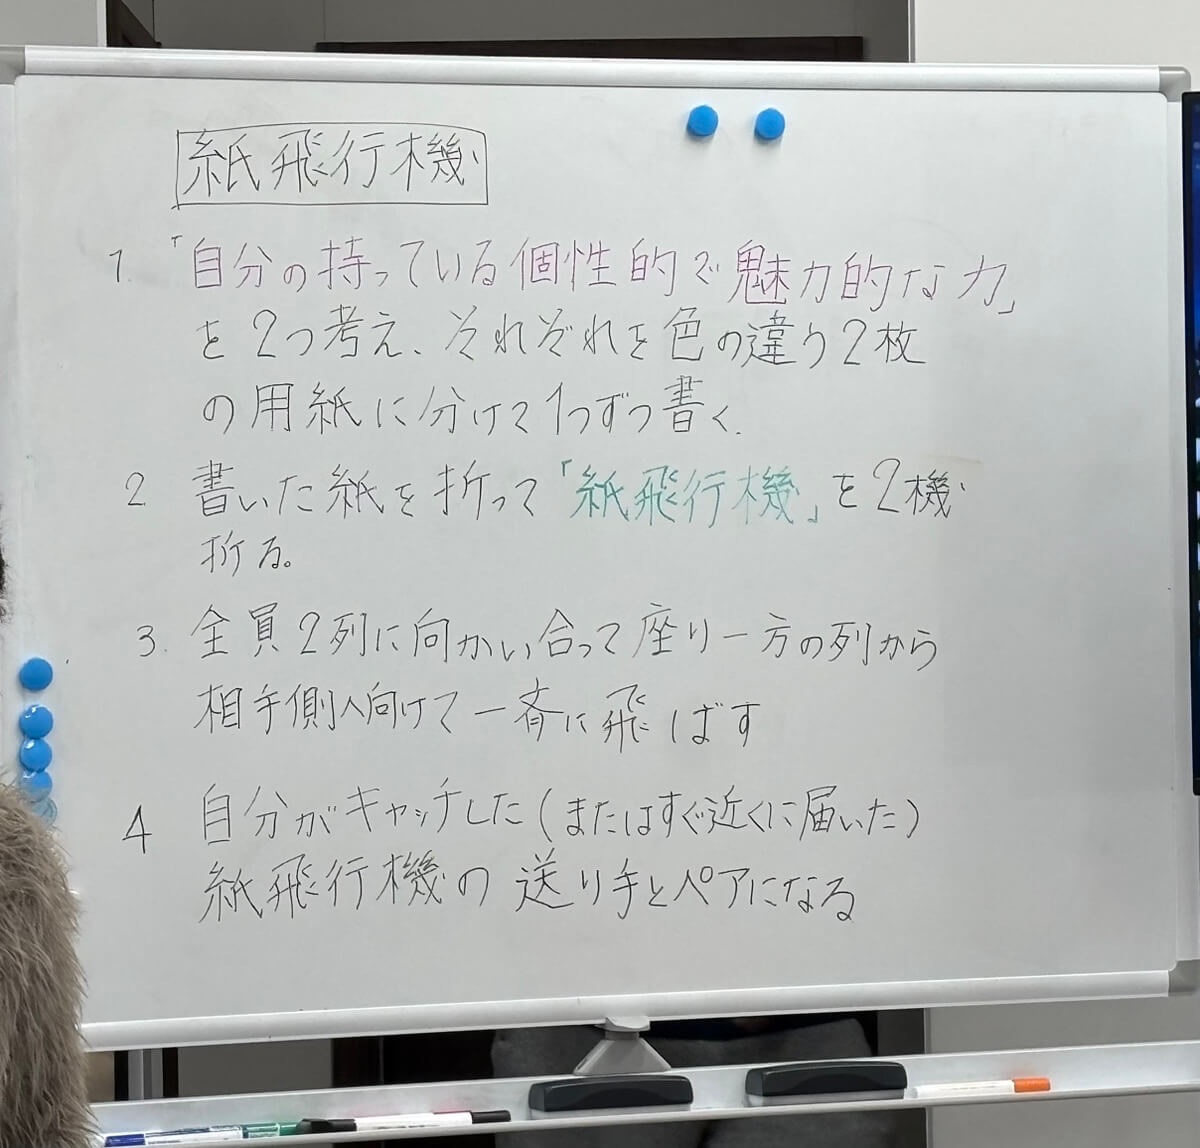 紙飛行機
1. 「自分の持っている個性的で魅力的な力」
を2つ考え、それぞれを色の違う2枚
の用紙に分けて1つずつ書く.
2 書いた紙を折って「紙飛行機」を2機
折る。
3. 全員2列に向かい合って座り一方の列から
相手側へ向けて一斉に飛ばす
4 自分がキャッチした(またはすぐ近くに届いた)
紙飛行機の送り手とペアになる